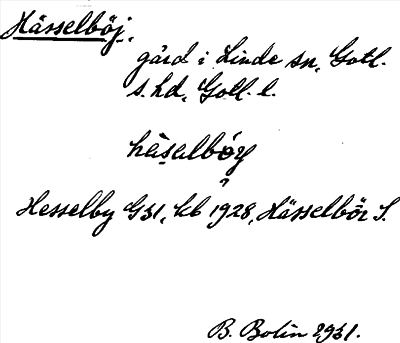 Hässelböj,
gård i Linde sn, Gotl.
s. hd, Gotl. l.
hä̀salböy
Hesselby G31, kb 1928, Hässelbör S.
B. Bolin 1931.